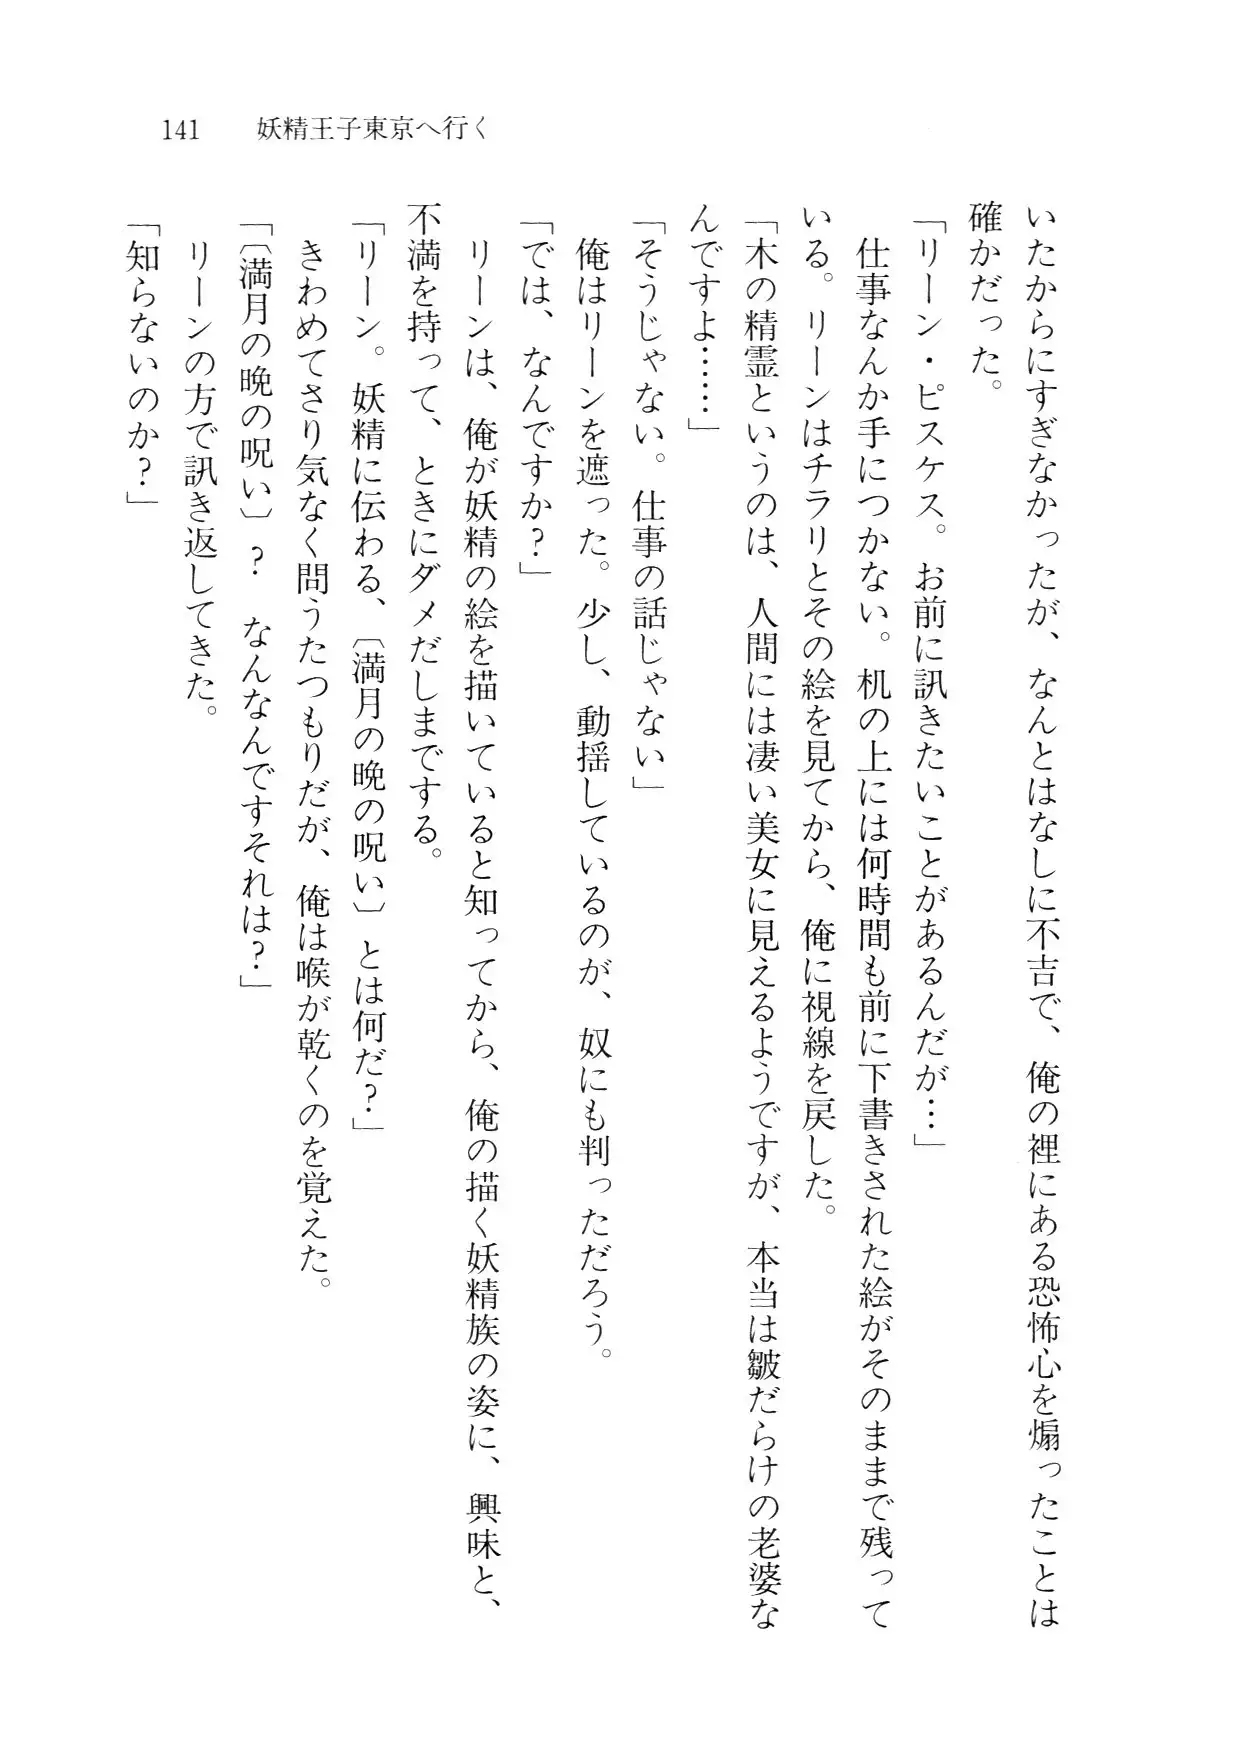 141 妖精王子東京へ行く
いたからにすぎなかったが、なんとはなしに不吉で、俺の裡にある恐怖心を煽ったことは
確かだった。
「リーン・ピスケス。お前に訊きたいことがあるんだが…」
仕事なんか手につかない。机の上には何時間も前に下書きされた絵がそのままで残って
いる。リーンはチラリとその絵を見てから、俺に視線を戻した。
「木の精霊というのは、人間には凄い美女に見えるようですが、本当は皺だらけの老婆な
んですよ……」
「そうじゃない。仕事の話じゃない」
俺はリーンを遮った。少し、動揺しているのが、奴にも判っただろう。
「では、なんですか?」
リーンは、俺が妖精の絵を描いていると知ってから、俺の描く妖精族の姿に、興味と、
不満を持って、ときにダメだしまでする。
「リーン。妖精に伝わる、〔満月の晩の呪い〕とは何だ?」
きわめてさり気なく問うたつもりだが、俺は喉が乾くのを覚えた。
「〔満月の晩の呪い〕? なんなんですそれは?」
リーンの方で訊き返してきた。
「知らないのか?」